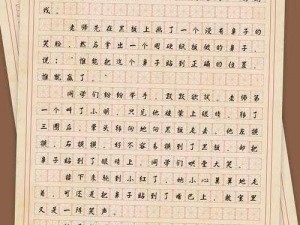 戏。
老师先在黑板上画了一个没有鼻子的
笑脸,然后拿出一个用硬纸板做的鼻子,
说:谁能把这个鼻子贴到正确的位置,
谁就赢了。
同学们纷纷举手,跃跃欲试。老师第
一个叫了小明,只见他蒙上眼睛,转了
三圈后,晕头转向地向黑板走去,他左摸
摸,右摸摸,好不容易摸到了黑板,却把
鼻子贴到了眼睛上,同学们哄堂大笑。
接下来轮到小红了,她小心翼翼地走
着,可还是把鼻子贴到了嘴巴上,教室里
又是一阵笑声。